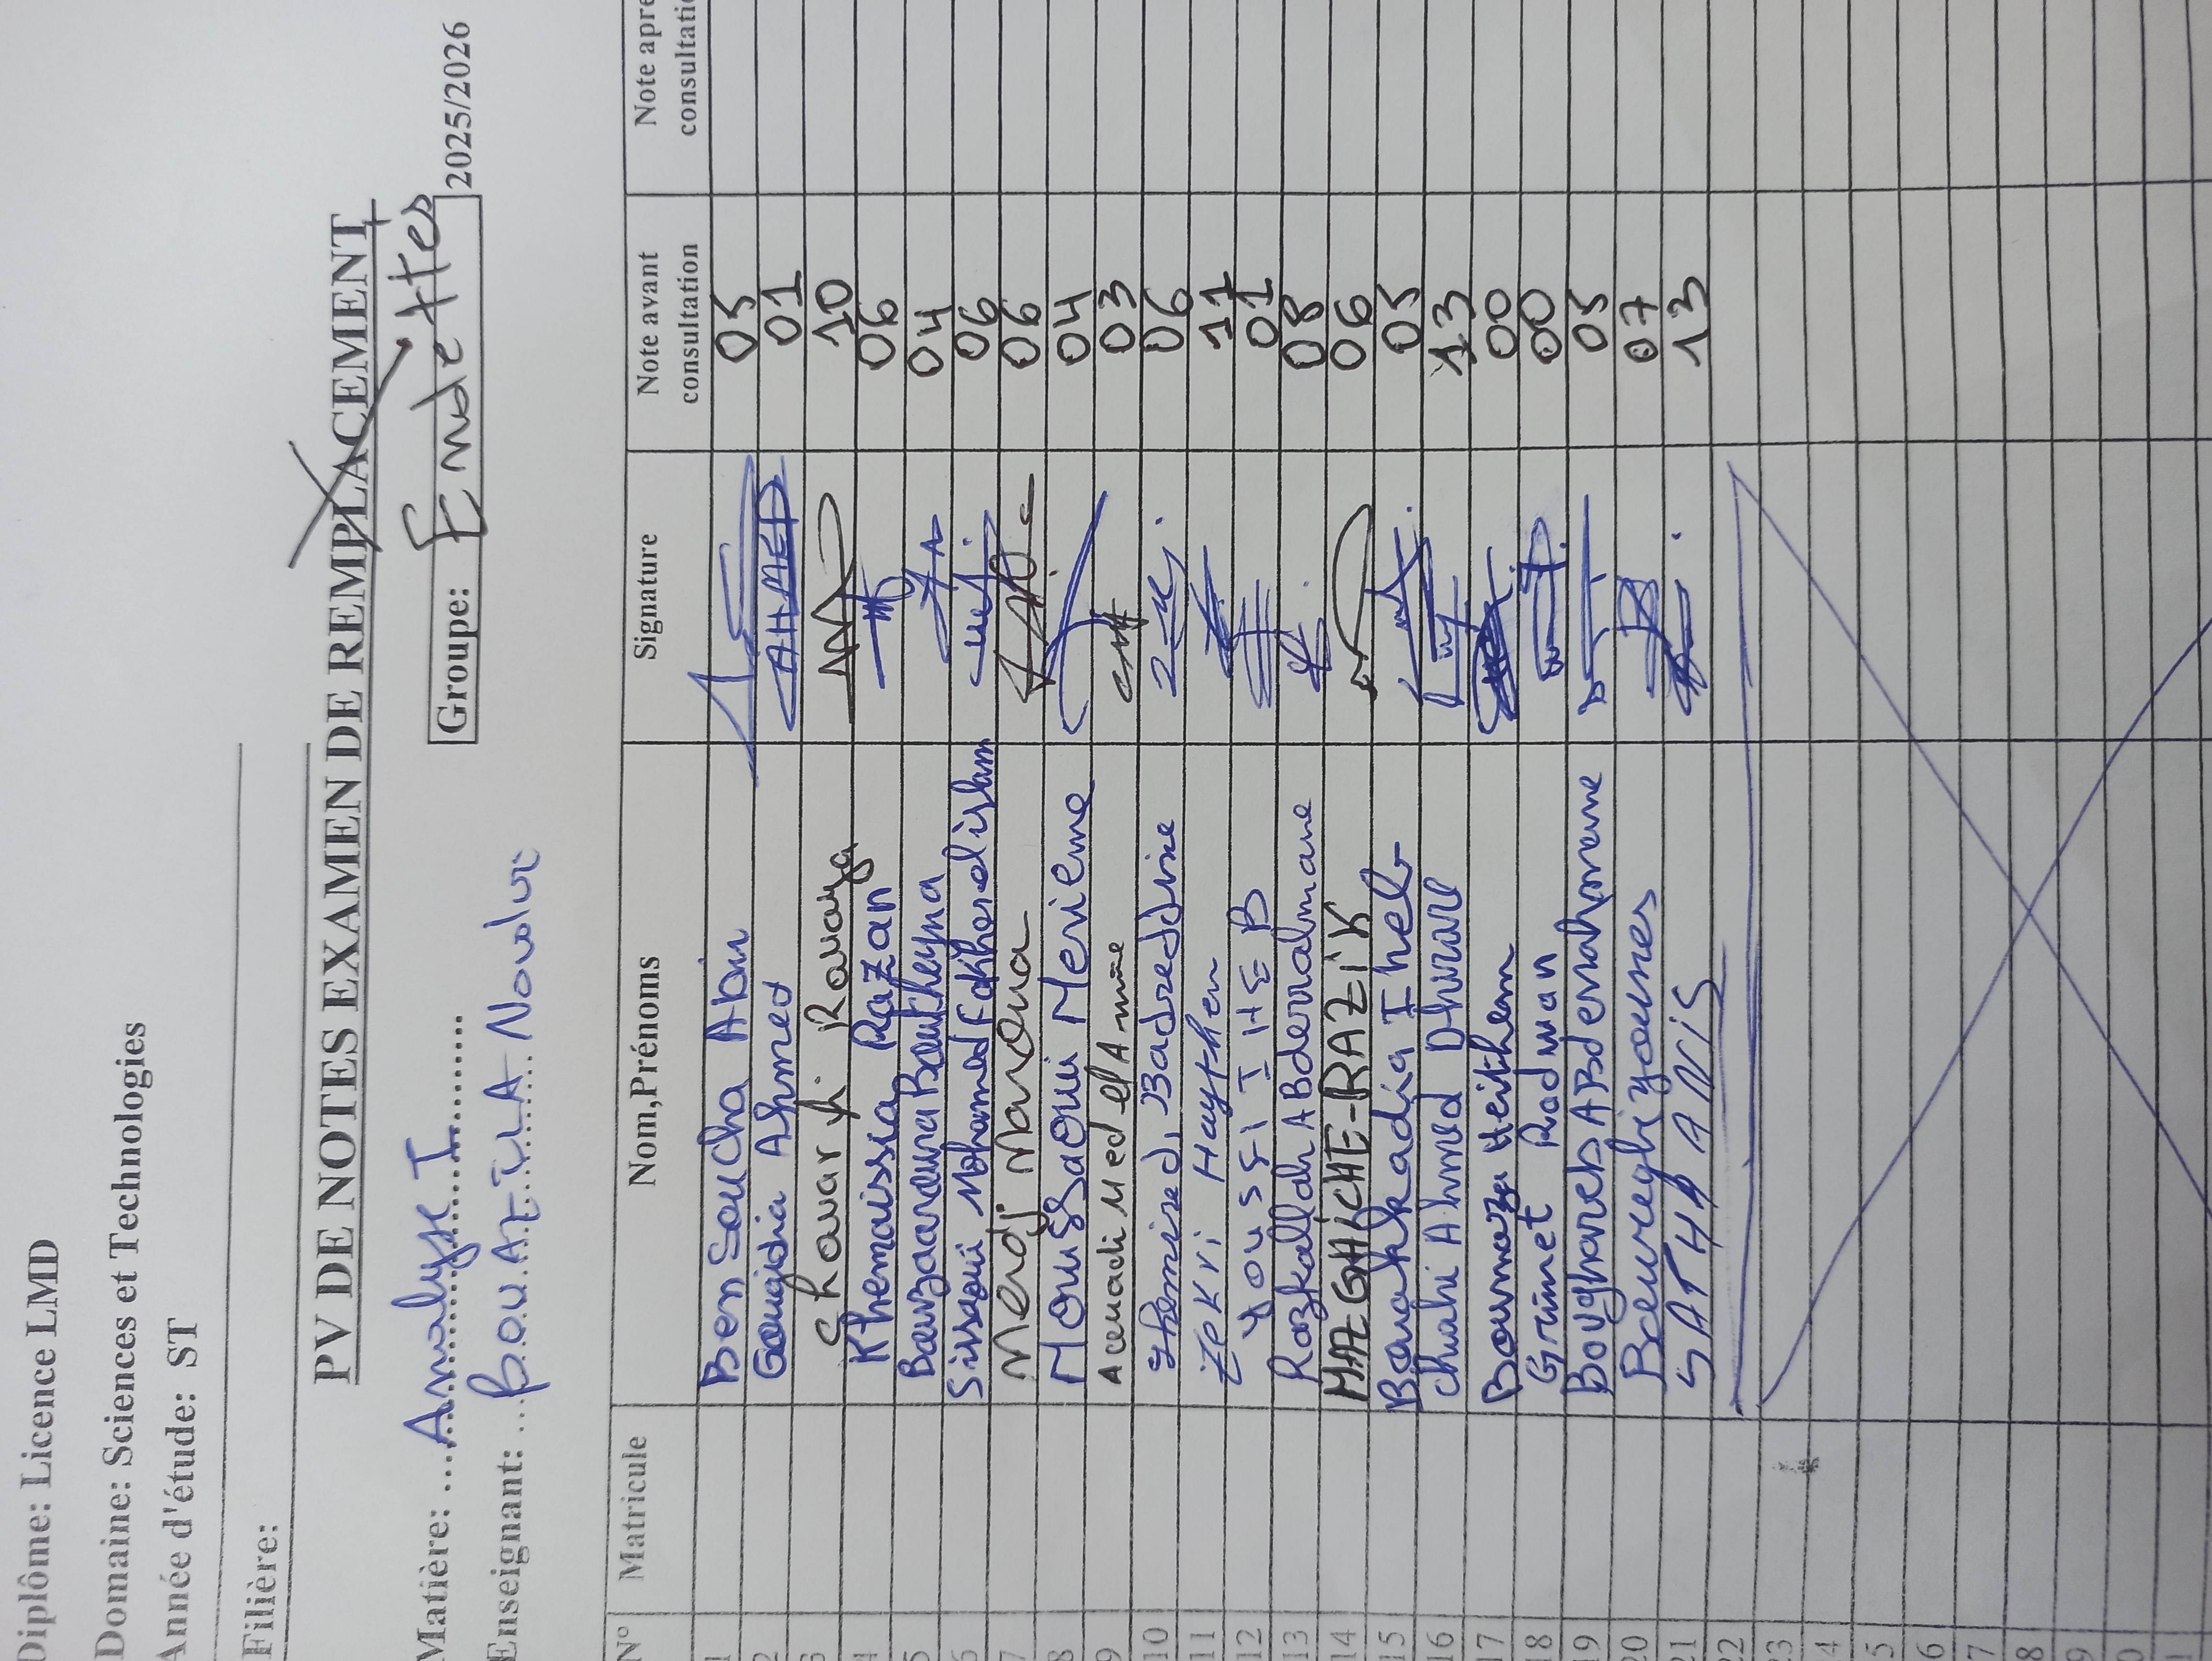 Diplôme: Licence LMD
Domaine: Sciences et Technologies
Année d'étude: ST
Filière:
PV DE NOTES EXAMEN DE REMPLACEMENT
Matière: ....Analyse I..........
Groupe: Endettes 2025/2026
Enseignant: ...BOUAZILA Nouour
N° Matricule Nom,Prénoms Signature Note avant consultation Note apre consultati
1 Ben Soucha Abir 05
2 Gougidia Ahmed AHMED 01
3 Ghouar ji Rouaya 10
4 Khemaissia Razan 06
5 Bouzaaroura Boutheyna 04
6 Sissaoui Mohamed Fakherelislam 06
7 Merdj Maroua 06
8 Moussaoui Merieme 04
9 Aouadi Med el Amine 03
10 Ghemired, Badreddine 06
11 Zekri Haythem 11
12 YOUSFI IHEB 01
13 Razkallah ABderrahmane 08
14 MAZGHICHE-RAZIK 06
15 Bouakkadia Iheb 05
16 Chahi Ahmed Dhirar 13
17 Boumaza Heithem 00
18 Grimet Radwan 00
19 Boughareb ABderrahmene 05
20 Boureghi younes 07
21 SATHA ANIS 13
22
23
4
5
6
7
8
9
0
1